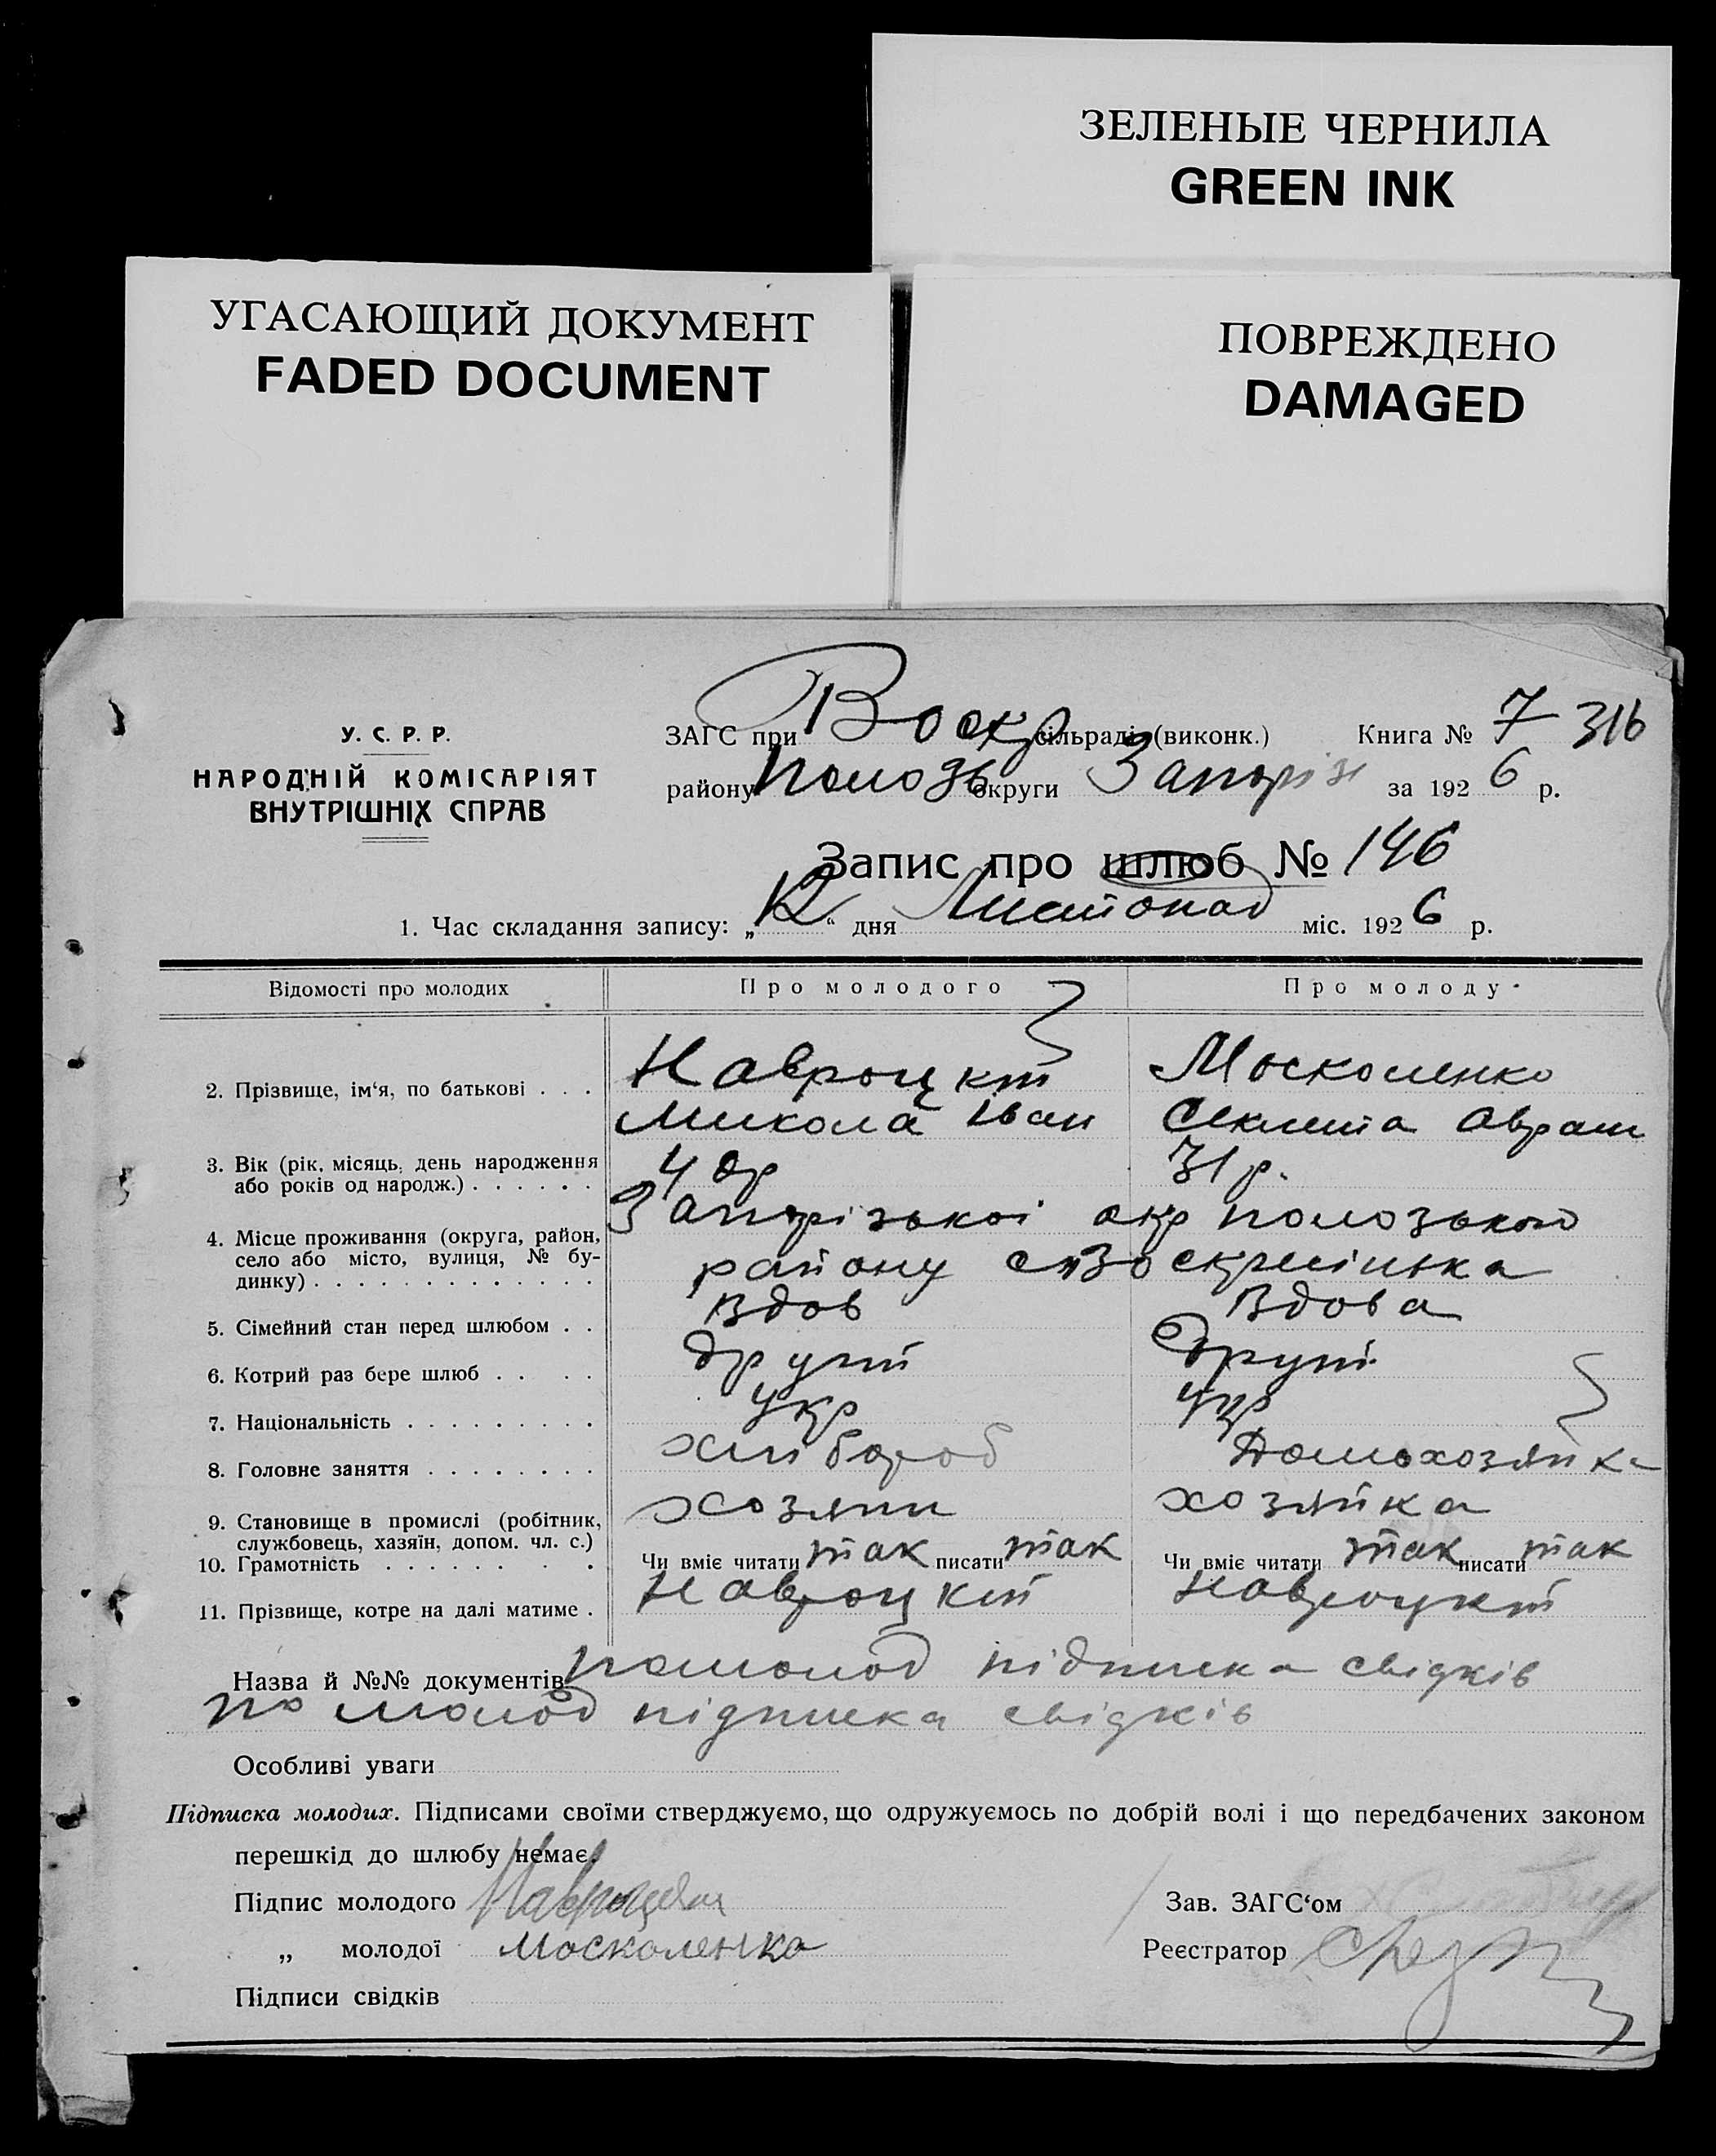 ЗЕЛЕНЫЕ ЧЕРНИЛА
GREEN INK
УГАСАЮЩИЙ ДОКУМЕНТ
FADED DOCUMENT
ПОВРЕЖДЕНО
DAMAGED
У. С. Р. Р.
НАРОДНІЙ КОМІСАРІЯТ
ВНУТРІШНІХ СПРАВ
ЗАГС при Воскр сільраді (виконк.) Книга № 7 316
району Полозь округи Запоріз за 1926 р.
Запис про шлюб № 146
1. Час складання запису: „12“ дня Листопад міс. 1926 р.
Відомості про молодих Про молодого Про молоду
2. Прізвище, ім‘я, по батькові . . . Навроцкий Москаленко
Микола Іван Секлета Аврам
3. Вік (рік, місяць, день народження або років од народж.) . . . . . . 40р 31р.
4. Місце проживання (округа, район, село або місто, вулиця, № будинку) . . . . . . . . . . . . . Запорізької окр полозького
району с Воскресінька
5. Сімейний стан перед шлюбом . . Вдов Вдова
6. Котрий раз бере шлюб . . . . другий другий
7. Національність . . . . . . . . . Укр Укр
8. Головне заняття . . . . . . . . хлібороб Домохозяйка
9. Становище в промислі (робітник, службовець, хазяїн, допом. чл. с.) хозяин хозяйка
10. Грамотність . . . . . . . . Чи вміє читати так писати так Чи вміє читати так писати так
11. Прізвище, котре на далі матиме . Навроцкий Навроцкий
Назва й №№ документів помолод підписка свідків
по молод підписка свідків
Особливі уваги
Підписка молодих. Підписами своїми стверджуємо, що одружуємось по добрій волі і що передбачених законом
перешкід до шлюбу немає.
Підпис молодого Зав. ЗАГС‘ом
„ молодої Москаленко Реєстратор
Підписи свідків